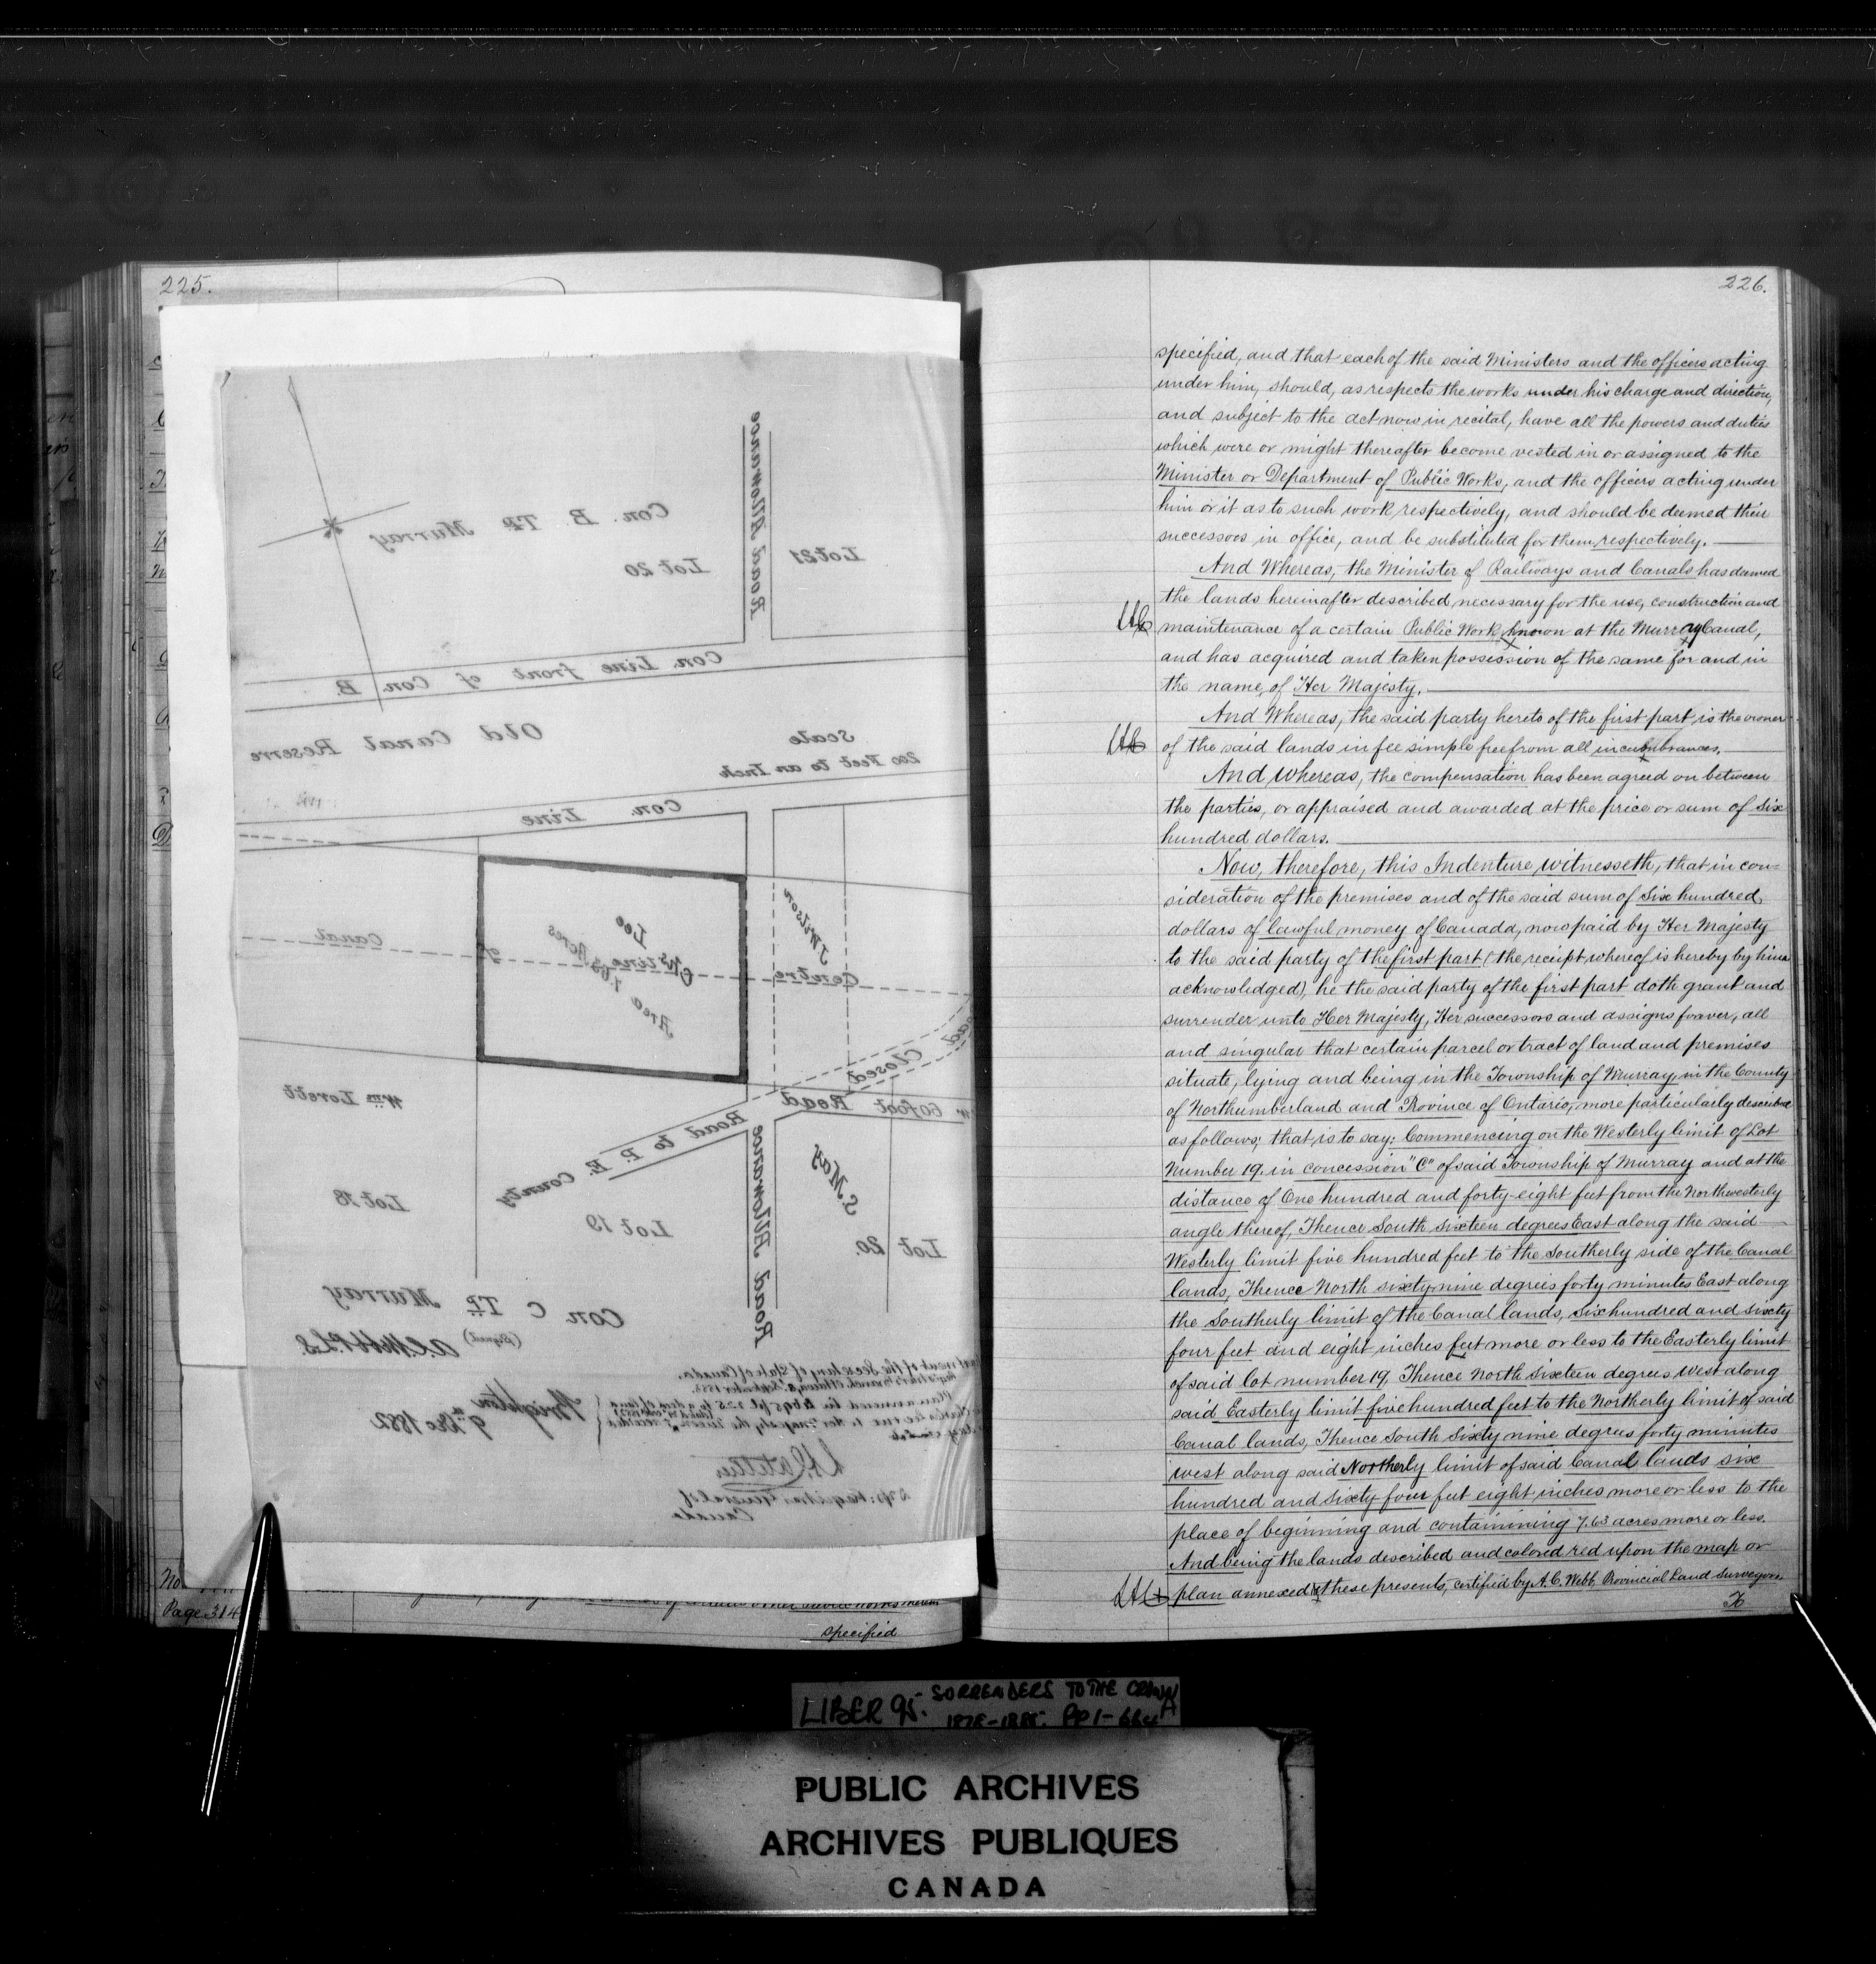 225.
Allowance
Road
Lot 21
Con. B. Tp Murray
Lot 20
Con. Line front of Con. B.
Old Canal Reserve
Scale
200 Feet to an Inch
Con. Line
J Wilson
Lee
Area 7.63 Acres
Centre line of Canal
Closed
60 foot Road
Road to P. E. County
Wm Lovett
Allowance
Road
S. May
Lot 18
Lot 19
Lot 20.
Con C Tp Murray
(Signed) A.C. Webb P.L.S
Brighton
9th Dec 1882
Department of the Secretary of State of Canada.
Registrar's Branch, Ottawa, September 1883.
Plan annexed in Lib 95 fol. 225 to a deed of land
Canada
Page 314
specified
226.
specified, and that each of the said Ministers and the officers acting
under him, should, as respects the works under his charge and direction,
and subject to the act now in recital, have all the powers and duties
which were or might thereafter become vested in or assigned to the
Minister or Department of Public Works, and the officers acting under
him or it as to such work respectively, and should be deemed their
successors in office, and be substituted for them respectively.
And Whereas, the Minister of Railways and Canals has deemed
the lands hereinafter described necessary for the use, construction and
maintenance of a certain Public Work known at the Murray Canal,
and has acquired and taken possession of the same for and in
the name, of Her Majesty.
And Whereas, the said party hereto of the first part, is the owner
of the said lands in fee simple free from all incumbrances.
And Whereas, the compensation has been agreed on between
the parties, or appraised and awarded at the price or sum of Six
hundred dollars.
Now, therefore, this Indenture witnesseth, that in con-
sideration of the premises and of the said sum of Six hundred
dollars of lawful money of Canada, now paid by Her Majesty
to the said party of the first part (the receipt whereof is hereby by him
acknowledged), he the said party of the first part doth grant and
surrender unto Her Majesty, Her successors and assigns forever, all
and singular that certain parcel or tract of land and premises
situate, lying and being in the Township of Murray, in the County
of Northumberland and Province of Ontario, more particularly described
as follows; that is to say: Commencing on the Westerly limit of Lot
Number 19. in concession "C" of said Township of Murray and at the
distance of One hundred and forty-eight feet from the Northwesterly
angle thereof, Thence South Sixteen degrees East along the said
Westerly limit five hundred feet to the Southerly side of the Canal
lands, Thence North sixty-nine degrees forty minutes East along
the Southerly limit of the Canal lands, six hundred and sixty
four feet and eight inches feet more or less to the Easterly limit
of said lot number 19, Thence North Sixteen degrees West along
said Easterly limit five hundred feet to the Northerly limit of said
Canal lands, Thence South Sixty nine degrees forty minutes
West along said Northerly limit of said Canal lands six
hundred and sixty four feet eight inches more or less to the
place of beginning and containining 7.63 acres more or less.
And being the lands described and colored red upon the map or
plan annexed to these presents, certified by A. C. Webb, Provincial Land Surveyor
To
LIBER 95. SURRENDERS TO THE CROWN
1878-1885. PP 1-
PUBLIC ARCHIVES
ARCHIVES PUBLIQUES
CANADA